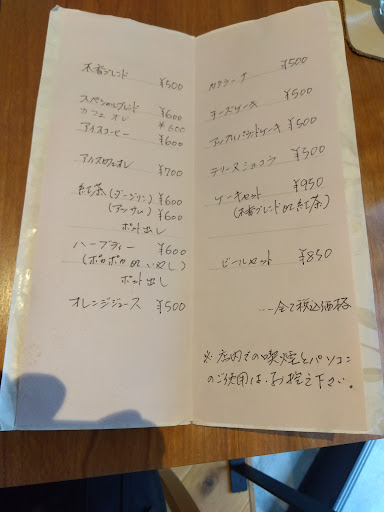 木香ブレンド ¥500
スペシャルブレンド ¥600
カフェオレ ¥600
アイスコーヒー ¥600
アイスカフェオレ ¥700
紅茶(ダージリン) ¥600
(アッサム) ¥600
ポット出し
ハーブティー ¥600
(ポカポカ or いやし)
ポット出し
オレンジジュース ¥500
ガトラーチ ¥500
チーズケーキ ¥500
アップルパウンドケーキ ¥500
テリーヌショコラ ¥500
ケーキセット ¥950
(木香ブレンド or 紅茶)
ビールセット ¥850
…全て税込価格
※店内での喫煙とパソコン
のご使用は、お控え下さい。